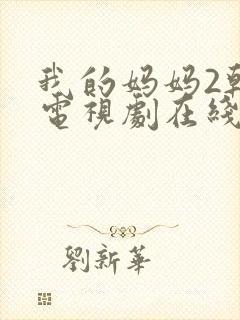 我的妈妈2韩
電視劇在綫
劉新華